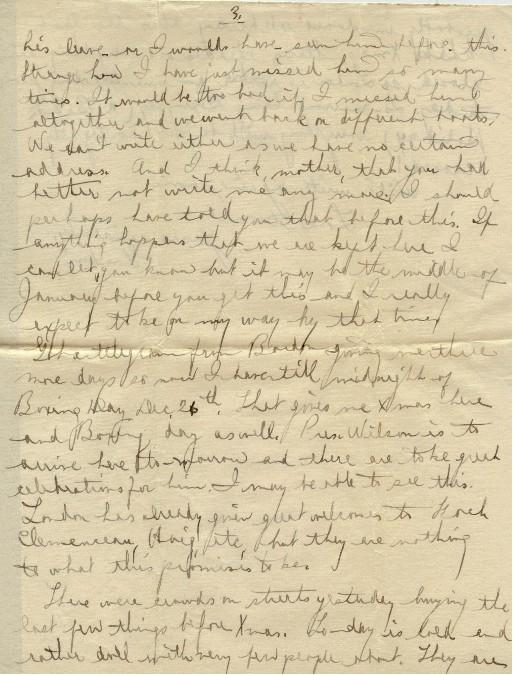 3.
his leave or I would have seen him before this.
Strange how I have just missed him so many
times. It would be too bad if I missed him
altogether and we went back on different boats.
We can't write either as we have no certain
address. And I think, mother, that you had
better not write me any more. I should
perhaps have told you that before this. If
anything happens that we are kept here I
can let you know but it may be the middle of
January before you get this and I really
expect to be on my way by that time.
Got a from Bordon giving me three
more days so now I have till midnight of
Boxing Day Dec. 26th. That gives me Xmas here
and Boxing day as well. Pres. Wilson is to
arrive here to-morrow and there are to be great
celebrations for him. I may be able to see this.
London has already given great welcomes to Foch
Clemenceau, Haig, etc. but they are nothing
to what this promises to be.
There were crowds on streets yesterday buying the
last few things before Xmas. To-day is cold and
rather dull with very few people about. They are